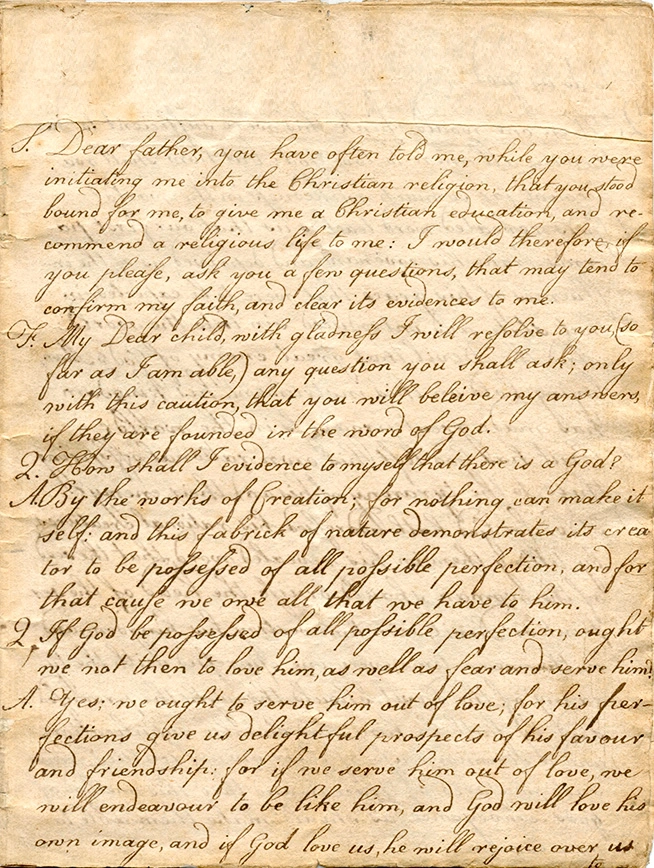 S. Dear father, you have often told me, while you were
initiating me into the Christian religion, that you stood
bound for me, to give me a Christian education, and re-
commend a religious life to me: I would therefore, if
you please, ask you a few questions, that may tend to
confirm my faith, and clear its evidences to me.
F. My Dear child, with gladness I will resolve to you, (so
far as I am able,) any question you shall ask; only
with this caution, that you will beleive my answers,
if they are founded in the word of God.
Q. How shall I evidence to myself that there is a God?
A. By the works of Creation; for nothing can make it
self: and this fabrick of nature demonstrates its crea
tor to be possessed of all possible perfection, and for
that cause we owe all that we have to him.
Q. If God be possessed of all possible perfection, ought
we not then to love him, as well as fear and serve him?
A. Yes; we ought to serve him out of love; for his per-
fections give us delightful prospects of his favour
and friendship: for if we serve him out of love, we
will endeavour to be like him, and God will love his
own image, and if God love us, he will rejoice over us
to